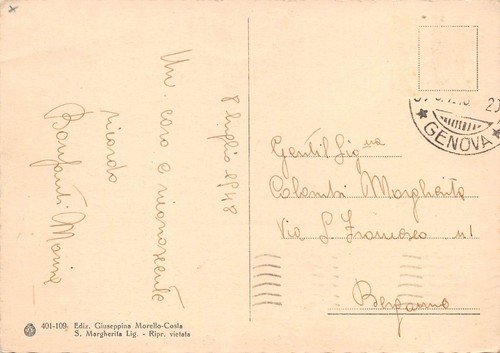 8 luglio 1948
Un caro e riconoscente
ricordo
Bonfanti Maria
Gentil Sig.na
Colombi Margherita
Via S. Francesco n 1
Bergamo
GENOVA
401-109 Ediz. Giuseppina Morello-Costa
S. Margherita Lig. - Ripr. vietata